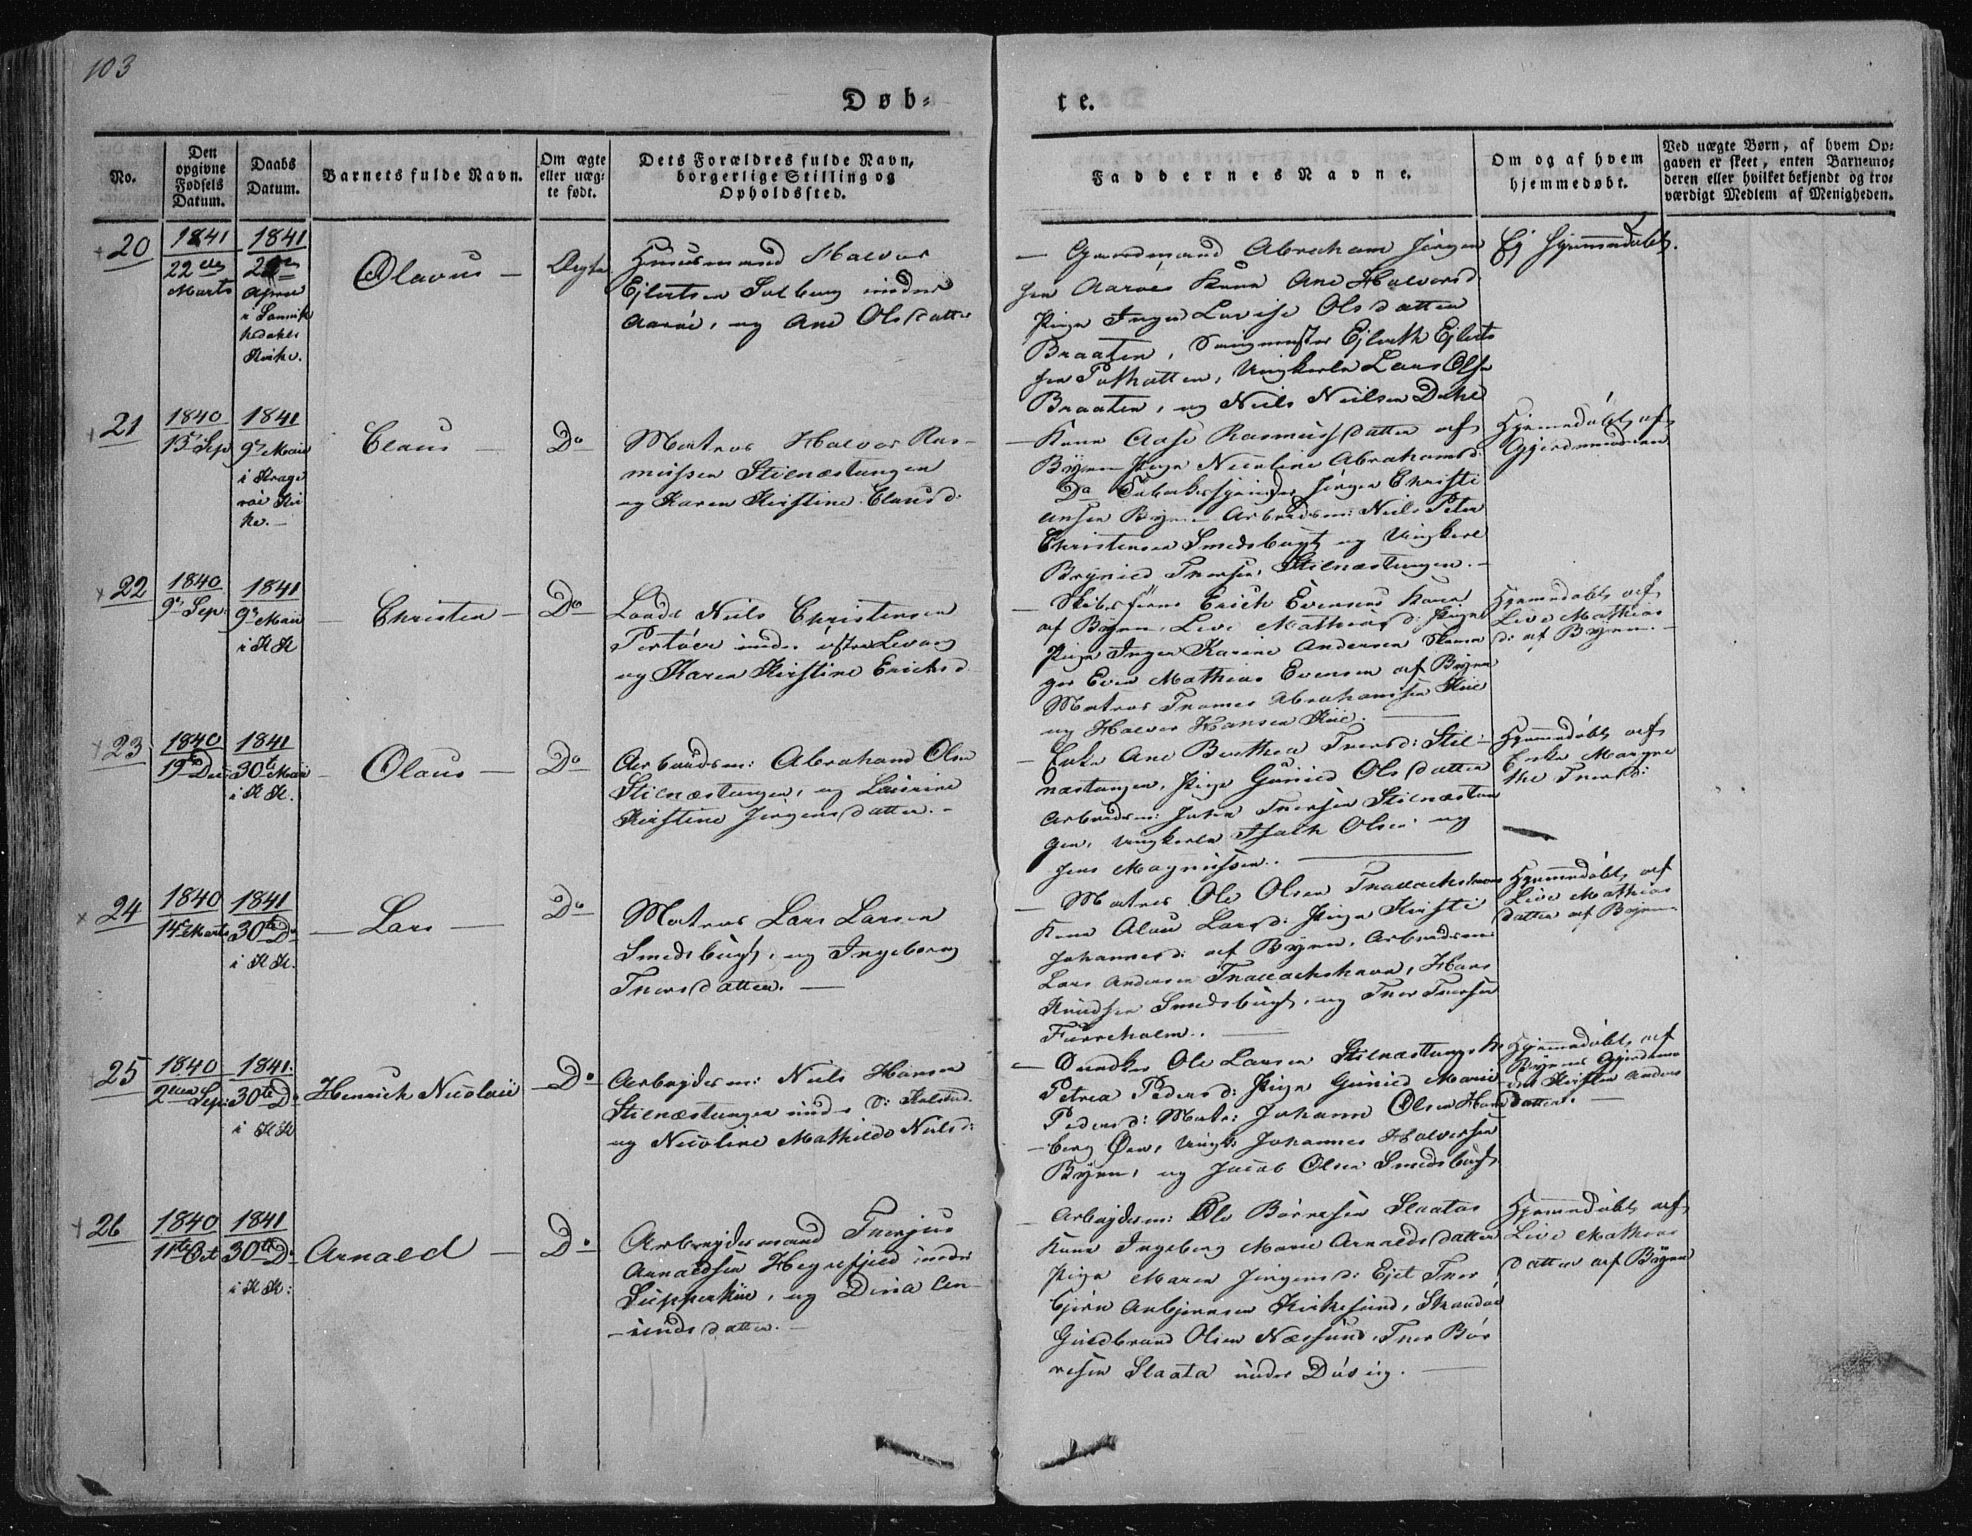 103
Døb-
te.
No.
Den opgivne Fødsels Datum.
Daabs Datum.
Barnets fulde Navn.
Om ægte eller uægte født.
Dets Forældres fulde Navn, borgerlige Stilling og Opholdssted.
Faddernes Navne.
Om og af hvem hjemmedøbt.
Ved uægte Børn, af hvem Opgaven er skeet, enten Barnemoderen eller hvilket bekjendt og troværdigt Medlem af Menigheden.
20
1841
22de
Marts
1841
April
i Sannik
kedahls
Kirke.
Olavus
Ægte
Huusmand Halvor
Ejlertsen Solberg under
Aarøe, og Ane Olsdatter
Gaardmand Abraham Jørgen
sen Aarøes Kone Ane Halvorsd
Pige Inger Lovise Olsdatter
Braaten, Ejlerth Ejlerts
sen, Ungkarle Lars Olsen
Braaten, og Niels Nielsen Dahl
Ej Hjemmedøbt.
21
1840
13de Sep
1841
9de Maii
i Krage
røe Kir
ke.
Claus
Do
Matros Halvor Ras-
mussen Stilnæstangen
og Karen Kirstine Clausd:
Kone Aase Rasmusdatter af
Byen Pige Nicoline Abrahamsd:
Do Jørgen Christi
ansen Byen Arbeidsm: Niels Peter
Christensen Smedsbugt og Ungkarl
Stilnæstangen.
Hjemmedøbt af
Gjordemoderen
22
1840
9de Sep:
1841
9de Maii
i K K
Christen
Do
Lods Niels Christensen
Portøen under østre Levang
og Karen Kirstine Ericksd
Skibsfører Erich Evensens Kone
af Byen, Live Mathiasd: Pige
Pige Inger Karine Andersen
Even Mathias Evensen af Byen
Matros Thomas Abrahamsen
og Halvor Hansen
Hjemmedøbt af
Live Mathias
d: af Byen.
23
1840
19de Dec:
1841
30te Maii
i K K.
Olaus
Do
Arbeidsm: Abraham Olsen
Stilnæstangen, og Laurine
Kirstine Jørgensdatter.
Enke Ane Berthea Thorsd: Stil-
næstangen, Pige Gunild Olsdatter
Arbeidsm: John Thorsen Stilnæstan
gen, Ungkarle Isach Olsen og
Jens Magnussen.
Hjemmedøbt af
Enke Margre
the Thorsd:
24
1840
14de Marts
1841
30te Do
i K K.
Lars
Do
Matros Lars Larsen
Smedsbugt, og Ingeborg
Thorsdatter.
Matros Ole Olsen
Kone Larsd: Pige Kirsti
Johannesd: af Byen, Arbeidsm:
Lars Andersen, Hans
Knudsen Smedsbugt, og Thor Thorsen
Furreholm.
Hjemmedøbt af
Live Mathias
datter af Byen
25
1840
Sep:
1841.
30te Do
i K K
Henrich Nicolaii
Do
Arbeydesm: Niels Hansen
Stilnæstangen under
og Nicoline Mathilde Nielsd:
Ole Larsen Stilnæstangs K
Petrea Pedersd: Pige Gunild Marie
Pedersd: Matr: Johann Olsen
Øen, Ungk: Johannes Halvorsen
Byen, og Jacob Olsen Smedsbugt
Hjemmedøbt af
Byens Gjordemo
der Kirsten Anders
datter.
26
1840
11te Oct
1841
30te Do
i K K:
Arnold
Do
Arbeydesmand Therjus
Arnoldsen Hegrefjeld under
og Dina Am-
undsdatter.
Arbeydesm: Ole Børresen Slaatas
Kone Ingeborg Marie Arnoldsdatter
Pige Maren Jørgensd: Thor
bjørn Arbjørnsen Kirkesund,
Guldbrand Olsen Næssund, Thor Bør
resen Slaata under
Hjemmedøbt af
Live Mathias
datter af Byen